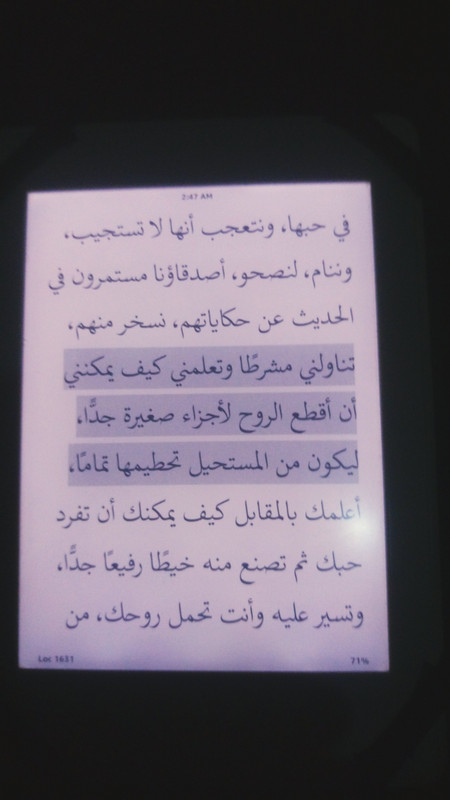 2:47 AM
في حبها، ونتعجب أنها لا تستجيب،
وننام، لنصحو، أصدقاؤنا مستمرون في
الحديث عن حكاياتهم، نسخر منهم،
تناولني مشرطًا وتعلمني كيف يمكنني
أن أقطع الروح لأجزاء صغيرة جدًّا،
ليكون من المستحيل تحطيمها تمامًا،
أعلمك بالمقابل كيف يمكنك أن تفرد
حبك ثم تصنع منه خيطًا رفيعًا جدًّا،
وتسير عليه وأنت تحمل روحك، من
Loc 1631 71%